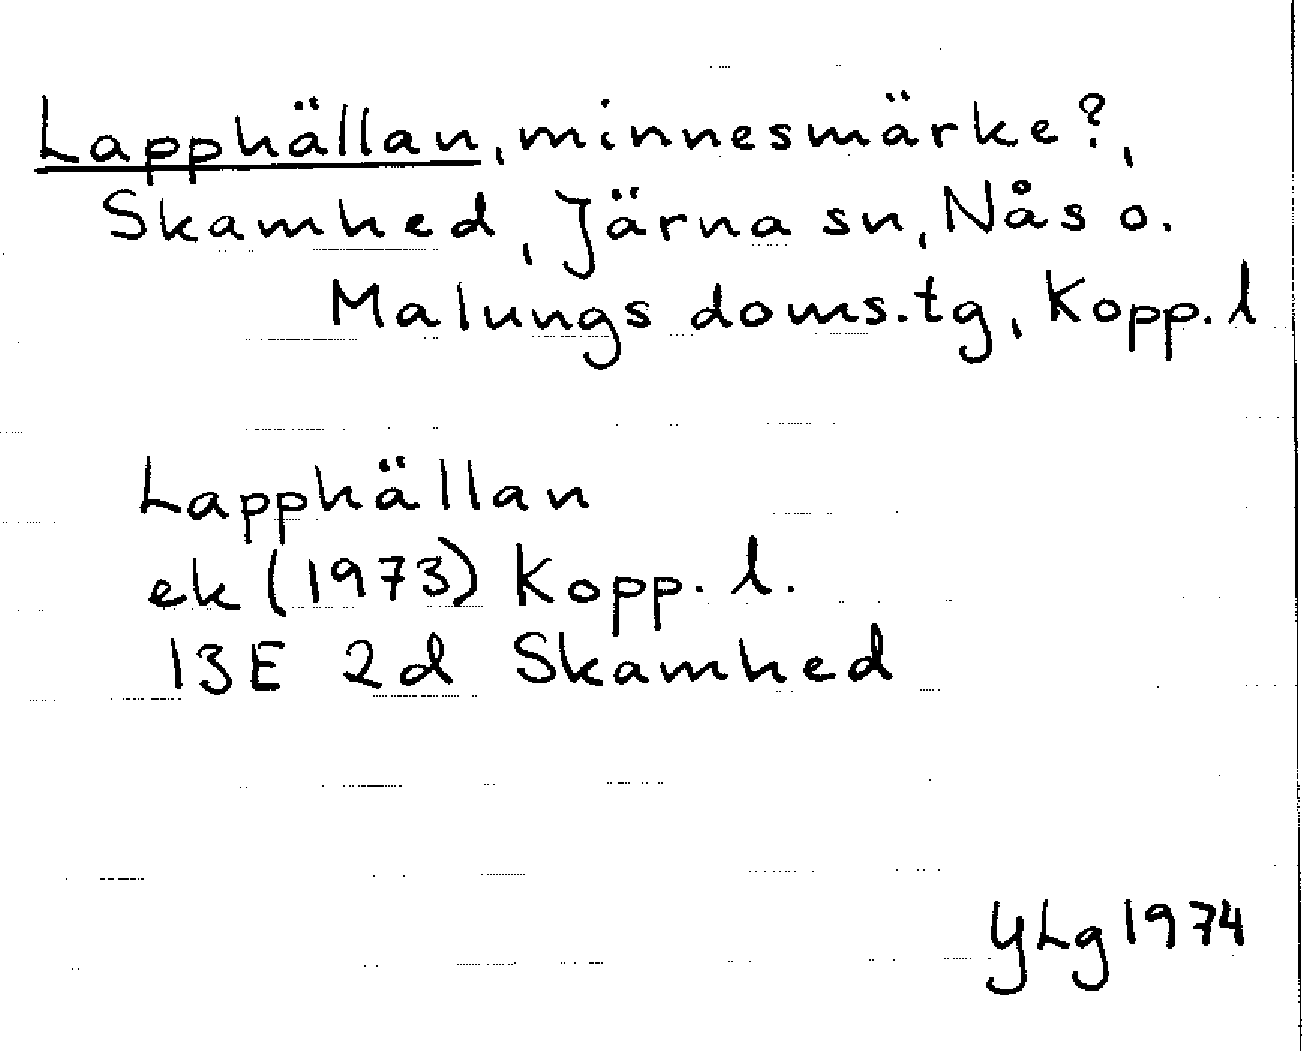 Lapphällan, minnesmärke?,
Skamhed, Järna sn, Nås o.
Malungs doms.tg, Kopp. l
Lapphällan
ek (1973) Kopp. l.
13E 2d Skamhed
YLg 1974